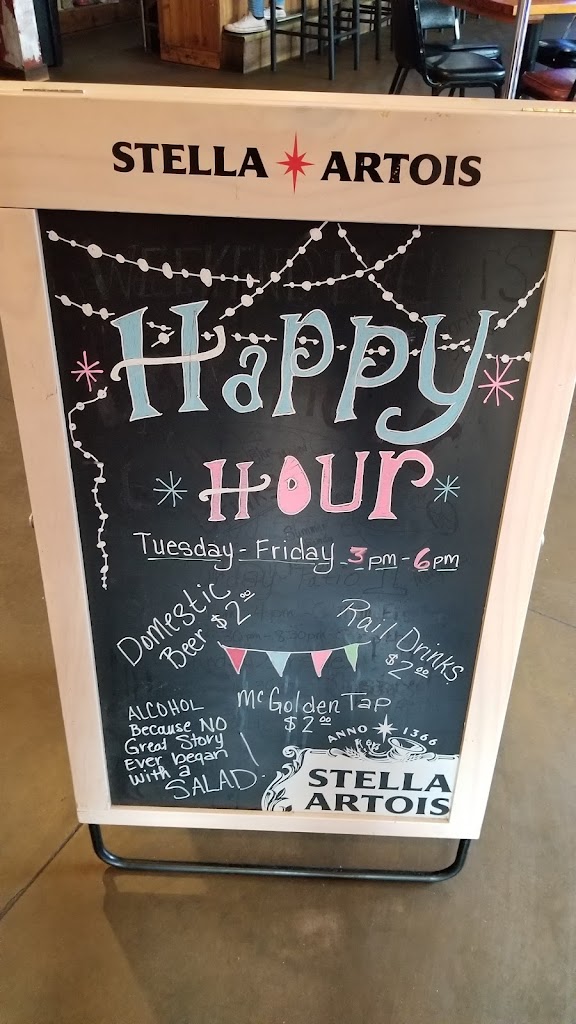 STELLA ARTOIS
WEEKEND EVENTS
Happy
Hour
Tuesday - Friday - 3pm - 6pm
Domestic
Beer $2.00
Rail Drinks
$2.00
McGolden Tap
$2.00
ALCOHOL
Because NO
Great Story
Ever began
with a
SALAD!
ANNO 1366
STELLA
ARTOIS